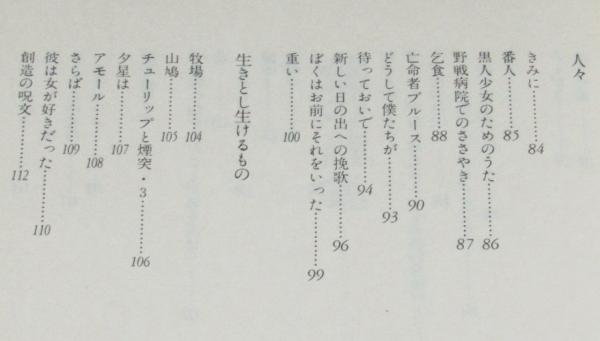 人々
きみに……………84
番人……………85
黒人少女のためのうた……………86
野戦病院でのささやき……………87
乞食……………88
亡命者ブルース……………90
どうして僕たちが……………93
待っておいで……………94
新しい日の出への挽歌……………96
ぼくはお前にそれをいった……………99
重い……………100
生きとし生けるもの
牧場……………104
山鳩……………105
チューリップと煙突・3……………106
夕星は……………107
アモール……………108
さらば……………109
彼は女が好きだった……………110
創造の呪文……………112